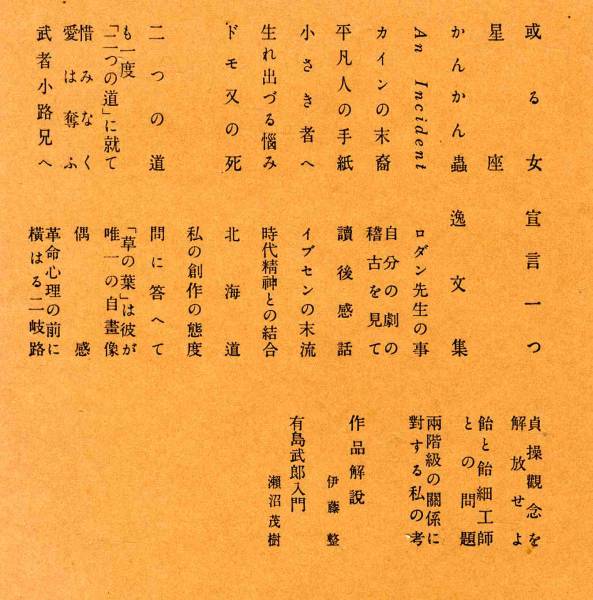 或る女
星座
かんかん蟲
An Incident
カインの末裔
平凡人の手紙
小さき者へ
生れ出づる惱み
ドモ又の死
二つの道
も一度
「二つの道」に就て
惜みなく
愛は奪ふ
武者小路兄へ
宣言一つ
逸文集
ロダン先生の事
自分の劇の
稽古を見て
讀後感話
イプセンの末流
時代精神との結合
北海道
私の創作の態度
問に答へて
「草の葉」は彼が
唯一の自畫像
偶感
革命心理の前に
橫はる二岐路
貞操觀念を
解放せよ
飴と飴細工師
との問題
兩階級の關係に
對する私の考
作品解說
伊藤整
有島武郎入門
瀨沼茂樹